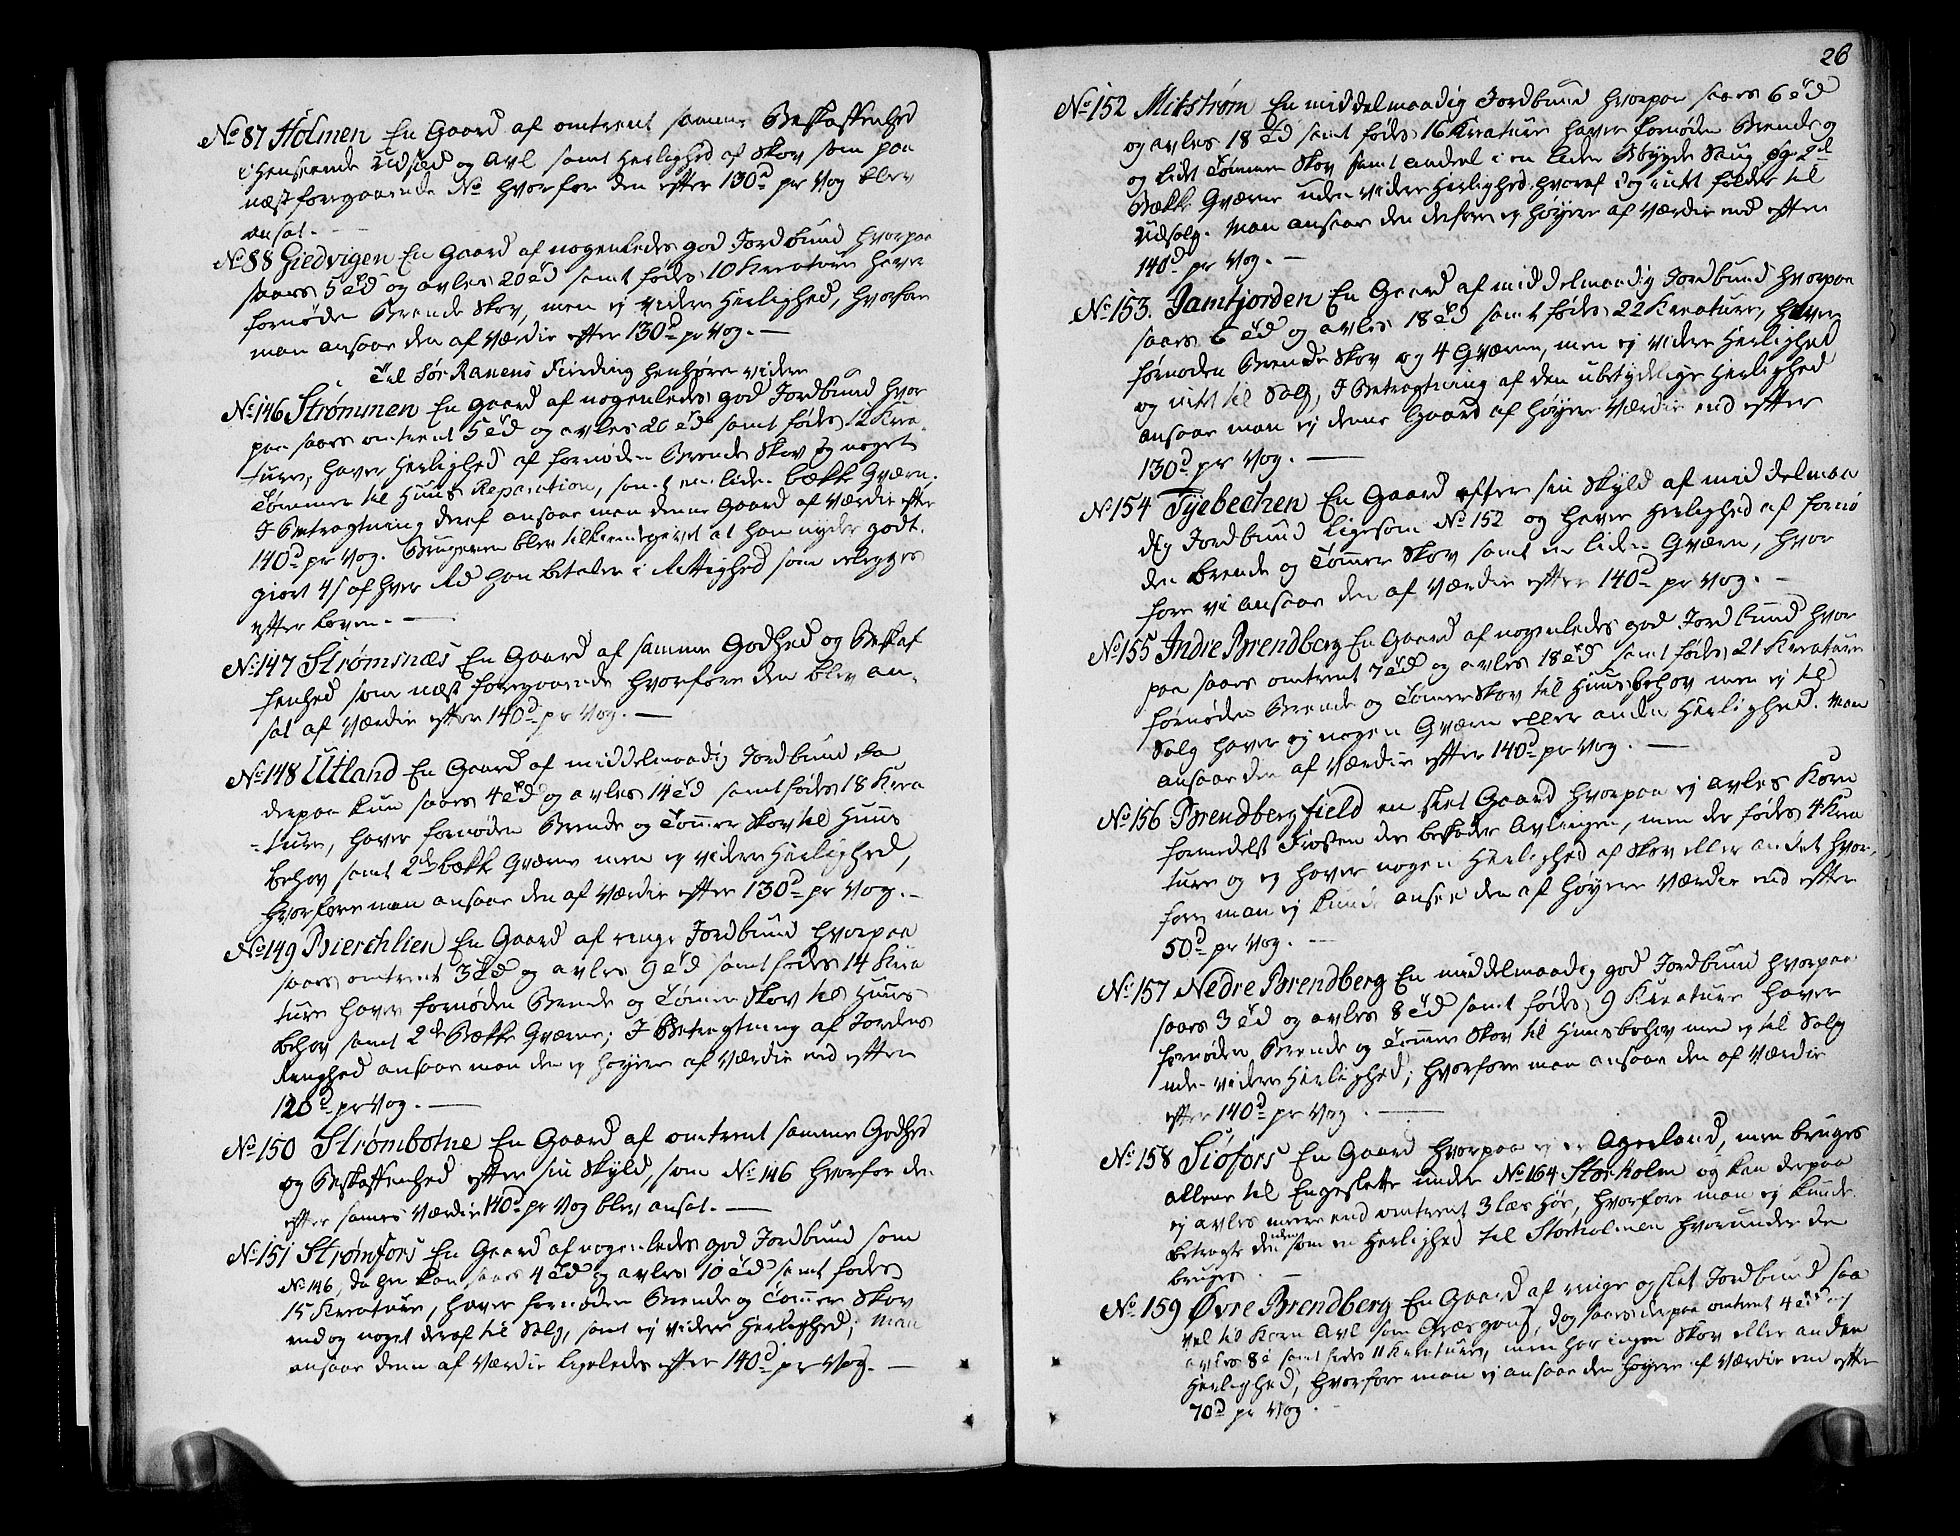 No 87 Holmen En Gaard af omtrent samme Beskaffenhed
i Henseende Udsæd og Avl samt Herlighed af Skov som paa
næst foregaaende No hvorfor den efter 130d pr Vog blev
ansat. -
No 88 Giedvigen En Gaard af nogenledes god Jordbund hvorpaa
saaes 5 td og avles 20 td samt födes 10 Kreature haver
fornöden Brende Skov, men ej videre Herlighed, hvorfor
man ansaae den af Værdie efter 130d pr Vog. -
Til Sör Ranens Finding henhörer videre
No 146 Strømmen En Gaard af nogenledes god Jordbund hvor
paa saaes omtrent 5 td og avles 20 td samt födes 12 Krea-
ture, haver Herlighed af fornöden Brende Skov og noget
Tömmer til Huus Reparation, samt en liden bække Qværn.
I Betragtning deraf ansaae man denne Gaard af Værdie efter
140d pr Vog. Brugeren blev tilkiendegivet at han nyder godt-
giort 4 s af hver Rd han betaler i Rettighed som erlægges
efter Loven. -
No 147 Strømsnæs En Gaard af samme Godhed og Beskaf
fenhed som næst foregaaende hvorfore den blev an-
sat af Værdie efter 140d pr Vog. -
No 148 Utland En Gaard af middelmaadig Jordbund da
derpaa kun saaes 4 td og avles 14 td samt födes 18 Krea
-ture, haver fornöden Brende og Tömer Skov til Huus
behov samt 2de bække Qværne men ej videre Herlighed,
Hvorfore man ansaae den af Værdie efter 130d pr Vog. -
No 149 Bierchlien En Gaard af ringe Jordbund hvorpaa
saaes omtrent 3 td og avles 9 td samt födes 14 Krea
ture haver fornöden Brende og Tömer Skov til Huus
behov samt 2de Bække Qværne; I Betragtning af Jordens
Ringhed ansaae man den ej höyere af Værdie end efter
120d pr Vog. -
No 150 Strømbotne En Gaard af omtrent samme Godhed
og Beskaffenhed efter sin Skyld, som No 146 hvorfor den
efter sames Værdie 140d pr Vog blev ansat. -
No 151 Strømfors En Gaard af nogenledes god Jordbund som
No 146, da her kan saaes 4 td og avles 10 td samt födes
15 Kreature, haver fornöden Brende og Tömer Skov
end og noget deraf til Salg, samt ej videre Herlighed; Man
ansaae denn af Værdie ligeledes efter 140d pr Vog. -
26
No 152 Mitstrøm En middelmaadig Jordbund hvorpaa saaes 6 td
og avles 18 td samt födes 16 Kreature haver fornöden Brende og
og lidt Tömmer Skov samt andeel i en liden Bögde Saug og 2de
Bække Qværne uden videre Herlighed, hvoraf dog intet falder til
Udsalg. Man ansaae den derfore ej höyere af Værdie end efter
140d pr Vog. -
No 153. Jamtjorden En Gaard af middelmaadig Jordbund hvorpaa
saaes 6 td og avles 18 td samt födes 22 Kreature, haver
fornöden Brende Skov og 4 Qværne, men ej videre Herlighed
og intet til Salg, I Betragtning af den ubetydelige Herlighed
ansaae man ej denne Gaard af höyere Værdie end efter
130d pr Vog. -
No 154 Tyebechen En Gaard efter sin Skyld af middelmaa
dig Jordbund Ligesom No 152 og haver Herlighed af fornö
den brende og Tömer Skov samt en liden Qværn, hvor
fore vi ansaae den af Værdie efter 140d pr Vog. -
No 155 Indre Brendberg En Gaard af nogenledes god Jordbund hvor
paa saaes omtrent 7 td og avles 18 td samt födes 21 Kreature
fornöden Brende og Tömer Skov til Huusbehov men ej til
Salg haver ej nogen Qværn eller anden Herlighed. Man
ansaae den af Værdie efter 140d pr Vog. -
No 156 Brendbergfield en slet Gaard hvorpaa ej avles Korn
formedelst Frosten der beskader Avlingen, men der födes 4 Krea
ture og ej haver nogen Herlighed af Skov eller andet hvor-
fore man ej kunde ansee den af höyere Værdie end efter
50d pr Vog. -
No 157 Nedre Brendberg En middelmaadig god Jordbund hvorpaa
saaes 3 td og avles 8 td samt födes 9 Kreature haver
fornöden Brende og Tömer Skov til Huusbehov men ej til Salg
uden videre Herlighed; hvorfore man ansaae den af Værdie
efter 140d pr Vog. -
No 158 Siøfors En Gaard hvorpaa ej er Agerland, men bruges
allene til Engeslette under No 164 Storholm og kan derpaa
ej avles mere end omtrent 3 læs Höe, hvorfore man ej kunde
betragte den uden som en Herlighed til Storholmen hvorunder den
bruges. -
No 159 Øvre Brendberg En Gaard af ringe og slet Jordbund saa
vel til Korn Avl som Græsgang, dog saaes derpaa omtrent 4 td og
avles 8 t samt födes 11 Kreature, men har ingen Skov eller anden
Herlighed, hvorfore man ej ansaae den höyere af Værdie end efter
70d pr Vog. -